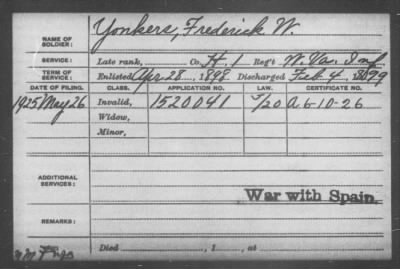 NAME OF SOLDIER: Yonkers, Frederick W.
SERVICE: Late rank, Co. H. 1 Reg't W. Va. Inf
TERM OF SERVICE: Enlisted Apr 28 1898 Discharged Feb 4 1899
DATE OF FILING. CLASS. APPLICATION NO. LAW. CERTIFICATE NO.
1925 May 26 Invalid, 1520041 A 6-10-26
Widow,
Minor,
ADDITIONAL SERVICES:
War with Spain.
REMARKS:
Died , 1 , at